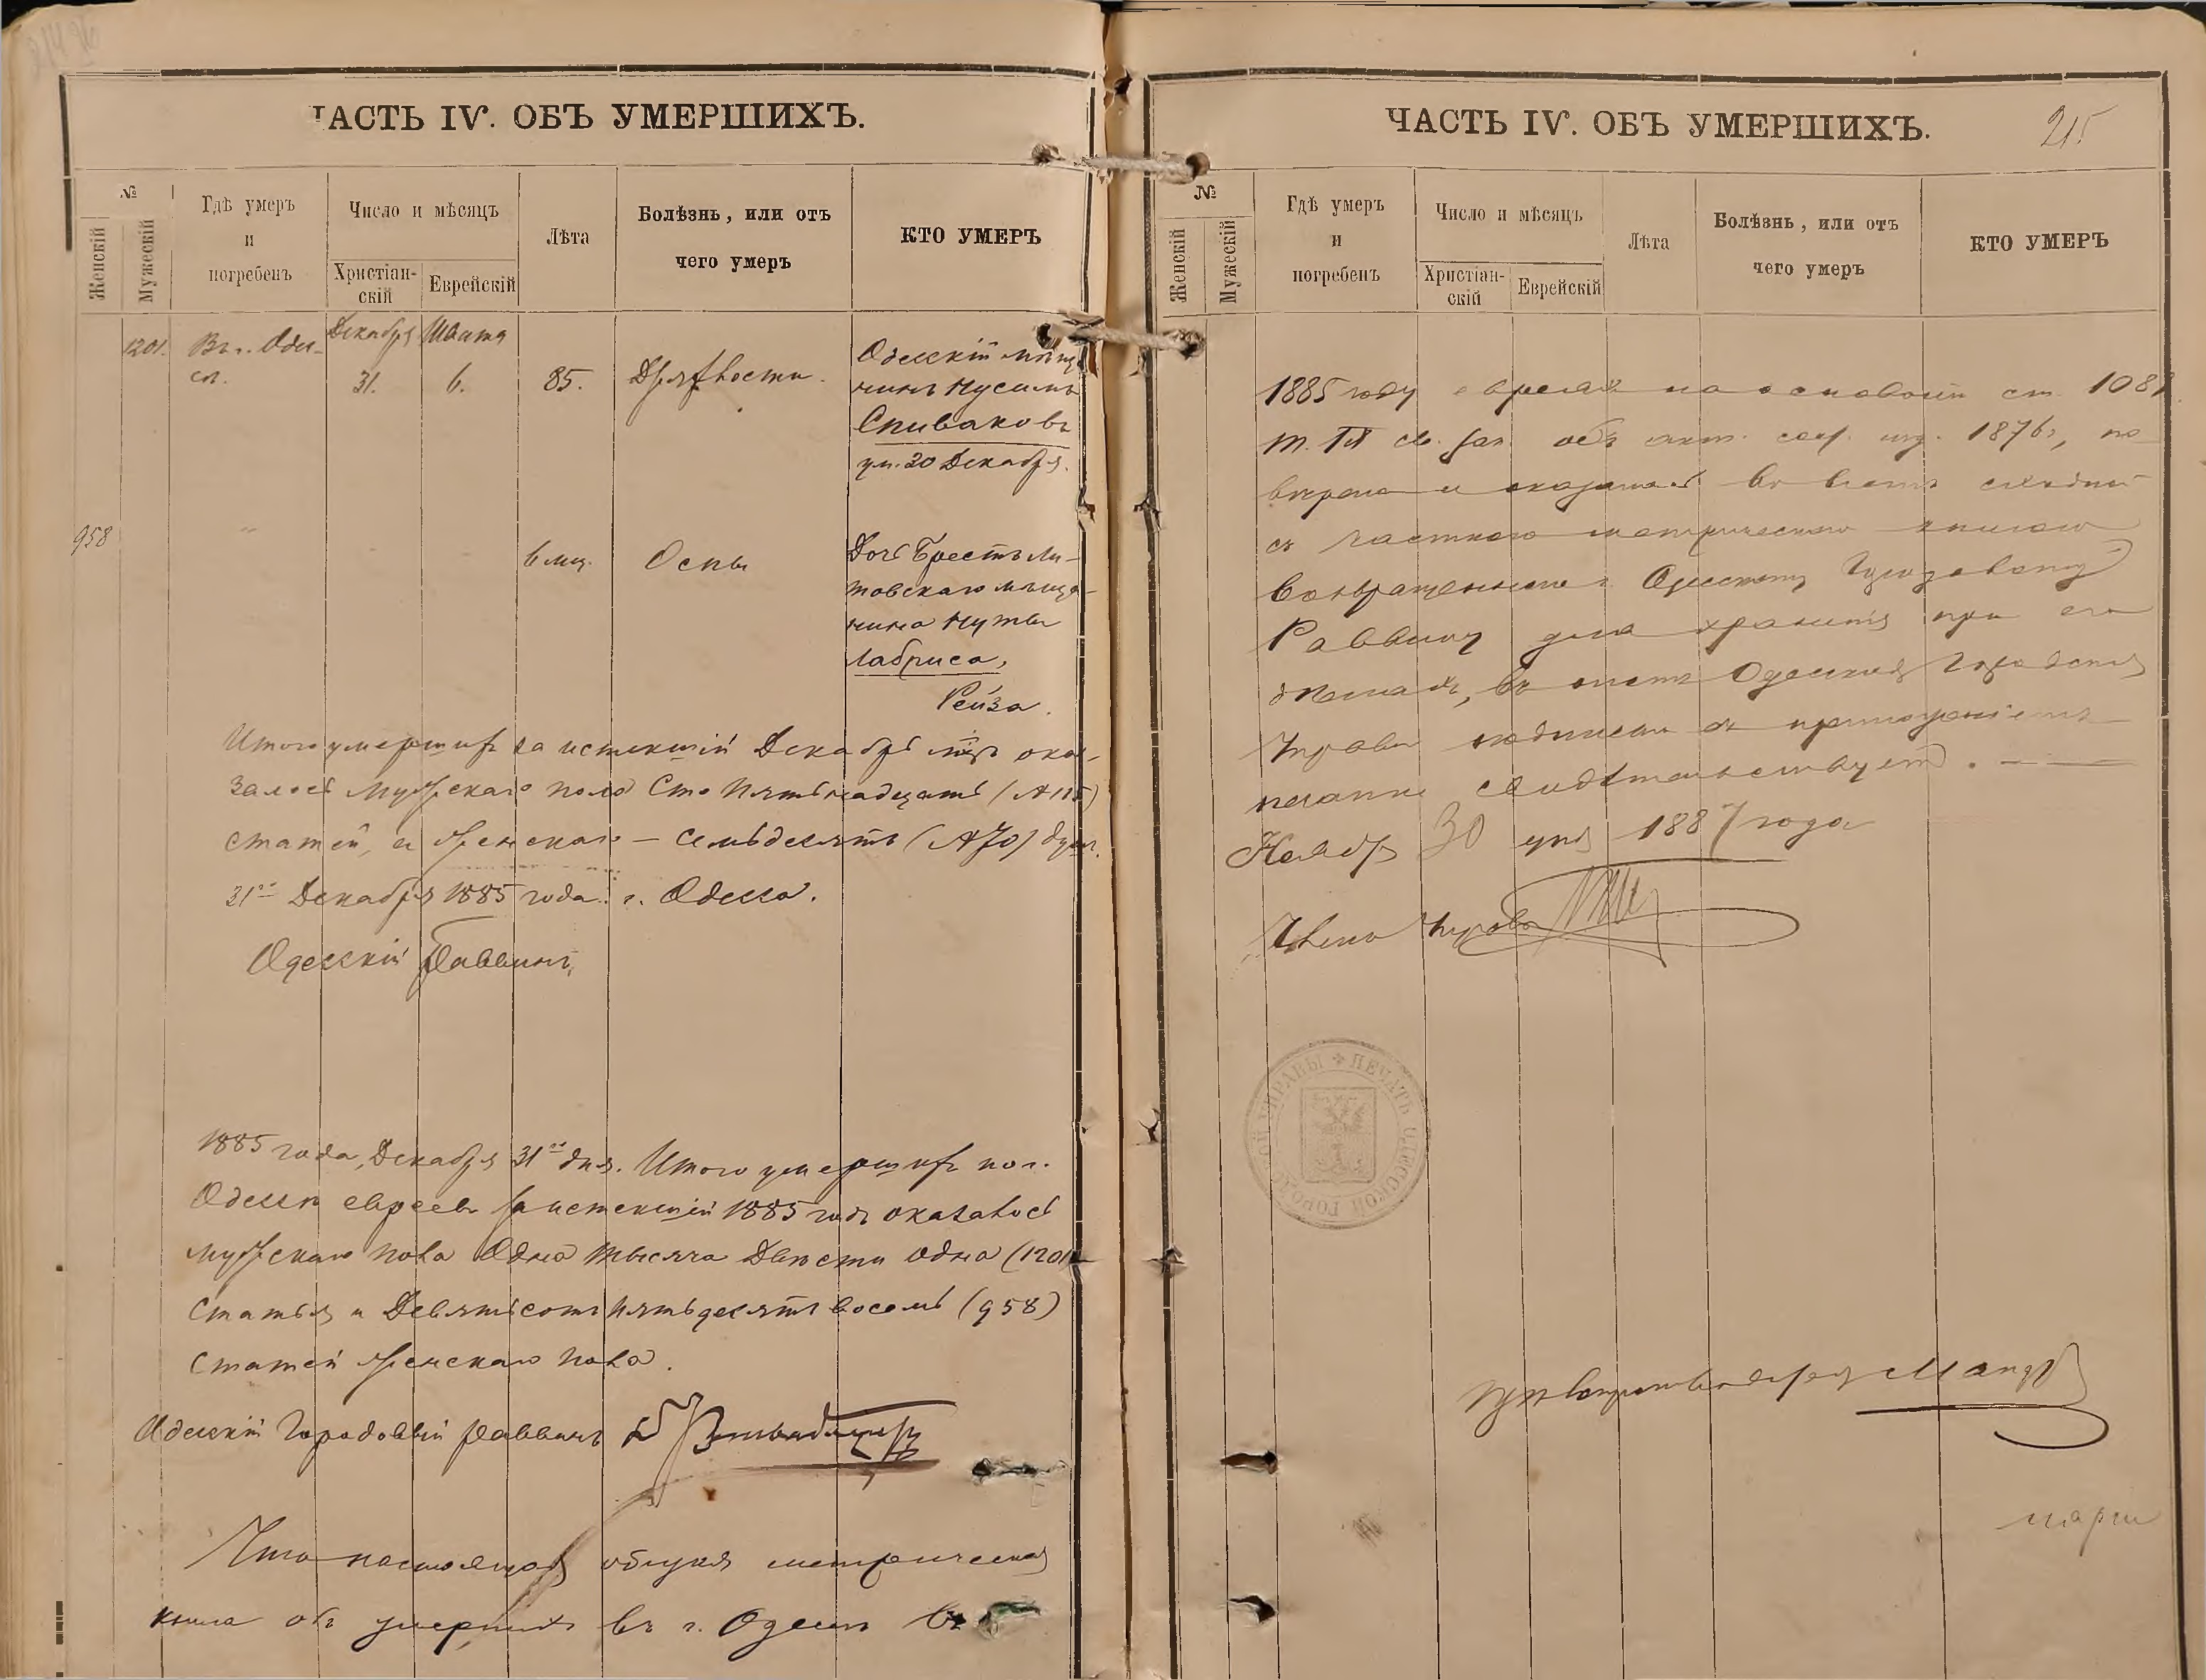 ЧАСТЬ IV. ОБЪ УМЕРШИХЪ.
№
Женскій
Мужескій
Гдѣ умеръ
и
погребенъ
Число и мѣсяцъ
Христіан-
скій
Еврейскій
Лѣта
Болѣзнь, или отъ
чего умеръ
КТО УМЕРЪ
1201.
Въ г. Одес-
сѣ.
Декабря
31.
Швата
6.
85.
Дряхлости.
Одесскій мѣща-
нинъ Нусимъ
Спиваковъ
ум. 30 Декабря.
958
"
6 мц.
Оспы
Дочь Брестъ Ли-
товскаго мѣща-
нина Нуты
Лабриса,
Рейза.
Итого умершихъ за истекшій Декабрь мѣс. ока-
залось Мужскаго пола Сто пятнадцать (№ 115)
статей, и Женскаго — семьдесятъ (№ 70) душъ.
31го Декабря 1885 года. г. Одесса.
Одесскій Раввинъ,
1885 года, Декабря 31го дня. Итого умершихъ по г.
Одессѣ евреевъ за истекшій 1885 годъ оказалось
мужскаго пола Одна тысяча Двѣсти Одна (1201)
Статья и Девятьсотъ пятьдесятъ восемь (958)
Статей женскаго пола.
Одесскій Городовый Раввинъ
Что настоящая общая метрическая
книга объ умершихъ въ г. Одессѣ въ
ЧАСТЬ IV. ОБЪ УМЕРШИХЪ.
215
№
Женскій
Мужескій
Гдѣ умеръ
и
погребенъ
Число и мѣсяцъ
Христіан-
скій
Еврейскій
Лѣта
Болѣзнь, или отъ
чего умеръ
КТО УМЕРЪ
1885 году евреяхъ на основаніи ст. 108
т. IX св. зак. объ акт. сост. изд. 1876 г., по
вѣрена и оказалась во всемъ сходной
съ частною метрическою книгою
возвращенною Одесскому Городовому
Раввину для храненія при его
дѣлахъ, въ чемъ Одесская Городская
Управа подписью съ приложеніемъ
печати свидѣтельствуетъ.
Ноября 30 дня 1887 года
Членъ Управы
ПЕЧАТЬ ОДЕССКОЙ ГОРОДСКОЙ УПРАВЫ